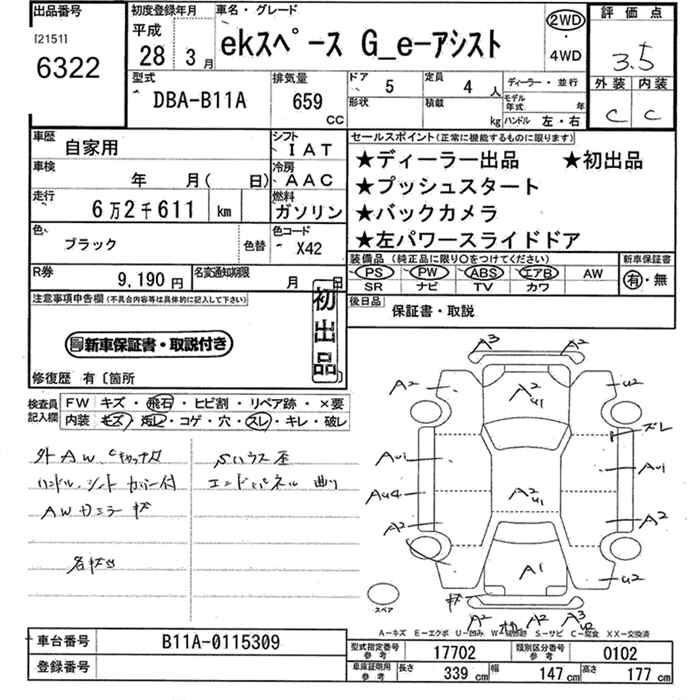 出品番号
[2151]
6322
初度登録年月
平成
28 3月
車名・グレード
ekスペース G_e-アシスト
2WD
・
4WD
評価点
3.5
外装 内装
C C
型式
DBA-B11A
排気量
659
CC
ドア 5
形状
定員 4 人
積載 kg
ディーラー・並行
モデル年式 年
ハンドル 左・右
車歴
自家用
シフト
IAT
車検
年 月( 日)
冷房
AAC
走行
6万2千611 km
燃料
ガソリン
色
ブラック
色替
色コード
X42
R券
9,190円
名変通知期限
月 日
セールスポイント(正常に機能するものに限ります)
★ディーラー出品 ★初出品
★プッシュスタート
★バックカメラ
★左パワースライドドア
装備品(純正品に限り○をつけてください)
PS PW ABS エアB AW
SR ナビ TV カワ
新車保証書
有・無
後日品
保証書・取説
注意事項申告欄(不具合内容等は具体的に記入して下さい)
初出品
新車保証書・取説付き
修復歴 有〔箇所
検査員
記入欄
FW キズ・飛石・ヒビ割・リペア跡・×要
内装 キズ・汚レ・コゲ・穴・スレ・キレ・破レ
外AW、
ハンドル、シートカバー付
AWカラーキズ
各キズ凹
Sハウス歪
エンドパネル曲り
A3 A2
A2 A2 U1 U2
ズレ
AU1 AU1
AU4 A2 U1
A2 A2
A1 U2
キズ
A2 A2 A3 U2
スペア
A-キズ E-エクボ U-凹み S-サビ C-腐食 XX-交換済
車台番号
B11A-0115309
登録番号
型式指定番号
参考
17702
類別区分番号
参考
0102
車庫証明用
参考
長さ 339 cm 幅 147 cm 高さ 177 cm